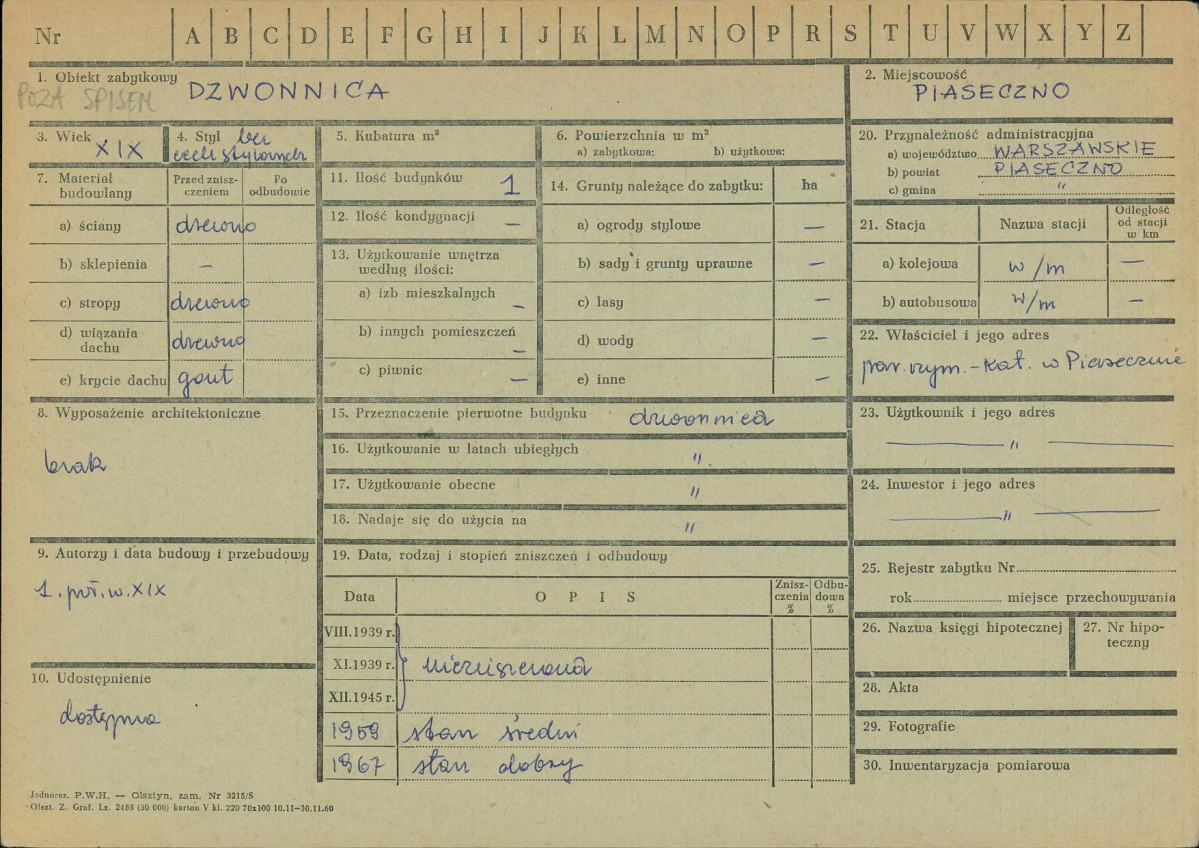 Nr A B C D E F G H I J K L M N O P R S T U V W X Y Z
1. Obiekt zabytkowy DZWONNICA
POZA SPISEM
2. Miejscowość
PIASECZNO
3. Wiek XIX
4. Styl bez
cech stylowych
5. Kubatura m³
6. Powierzchnia w m²
a) zabytkowa: b) użytkowa:
20. Przynależność administracyjna
a) województwo WARSZAWSKIE
b) powiat PIASECZNO
c) gmina "
7. Materiał budowlany
Przed zniszczeniem
Po odbudowie
a) ściany drewno
b) sklepienia —
c) stropy drewno
d) wiązania dachu drewno
e) krycie dachu gont
11. Ilość budynków 1
12. Ilość kondygnacji —
13. Użytkowanie wnętrza
według ilości:
a) izb mieszkalnych —
b) innych pomieszczeń —
c) piwnic —
14. Grunty należące do zabytku: ha
a) ogrody stylowe —
b) sady i grunty uprawne —
c) lasy —
d) wody —
e) inne —
21. Stacja Nazwa stacji
Odległość
od stacji
w km
a) kolejowa w/m —
b) autobusowa w/m —
22. Właściciel i jego adres
par. rzym.-kat. w Piasecznie
8. Wyposażenie architektoniczne
brak
15. Przeznaczenie pierwotne budynku dzwonnica
16. Użytkowanie w latach ubiegłych "
17. Użytkowanie obecne "
18. Nadaje się do użycia na "
23. Użytkownik i jego adres
— " —
24. Inwestor i jego adres
— " —
9. Autorzy i data budowy i przebudowy
1. poł. w. XIX
19. Data, rodzaj i stopień zniszczeń i odbudowy
Data OPIS
Zniszczenia %
Odbudowa %
VIII.1939 r.
XI.1939 r. niezniszczona
XII.1945 r.
1959 stan średni
1967 stan dobry
25. Rejestr zabytku Nr
rok miejsce przechowywania
26. Nazwa księgi hipotecznej
27. Nr hipoteczny
28. Akta
29. Fotografie
30. Inwentaryzacja pomiarowa
10. Udostępnienie
dostępna
Jednoraz. P.W.H. — Olsztyn, zam. Nr 3215/S
Olszt. Z. Graf. Lz. 2485 (30 000) karton V kl. 220 70x100 10.11—30.11.60